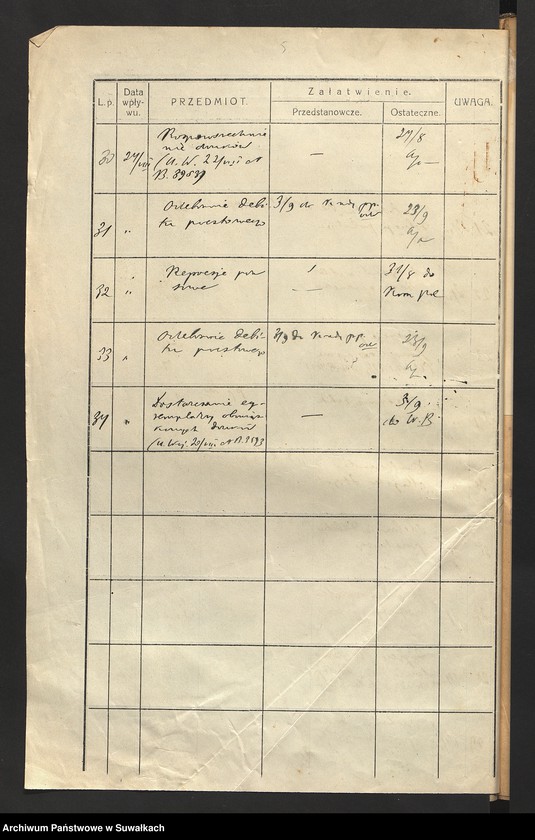 5
L.p.
Data wpły-wu.
PRZEDMIOT.
Załatwienie.
Przedstanowcze.
Ostateczne.
UWAGA.
30
27/VIII
Rozpowszechnia
nie druków
(U. W. 22/VIII
—
27/8
a/a
31
"
Odebranie debi-
tu pocztowego
3/9 do
23/9
a/a
32
"
Represje pra
sowe
—
31/8 do
Kom. pol
33
"
Odebranie debi-
tu pocztowego
3/9 do
23/9
a/a
34
"
Dostarczanie eg-
zemplarzy obowiąz
kowych druków
—
3/9
do W. B.
Archiwum Państwowe w Suwałkach